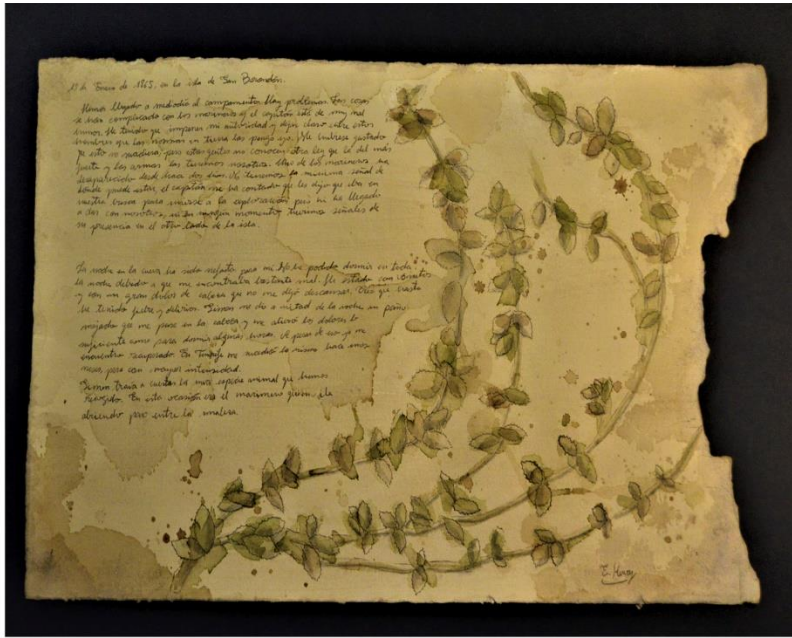 17 de Enero de 1865, en la isla de San Borondón.
Hemos llegado a mediodía al campamento. Hay problemas. Las cosas
se han complicado con los marineros y el capitán está de muy mal
humor. He tenido que imponer mi autoridad y dejar claro entre estos
hombres que las normas en tierra las pongo yo. Me hubiese gustado
que esto no sucediera, pero estas gentes no conocen otra ley que la del más
fuerte y las armas las tenemos nosotros. Uno de los marineros ha
desaparecido desde hace dos días. No tenemos la mínima señal de
donde puede estar, el capitán me ha contado que les dijo que iba en
nuestra busca para unirse a la exploración pero ni ha llegado
a dar con nosotros, ni en ningún momento tuvimos señales de
su presencia en el otro lado de la isla.
La noche en la cueva ha sido nefasta para mi. No he podido dormir en toda
la noche debido a que me encontraba bastante mal. He estado con vómitos
y con un gran dolor de cabeza que no me dejó descansar. Creo que hasta
he tenido fiebre y delirios. Simon me dio a mitad de la noche un paño
mojado que me puse en la cabeza y me alivió los dolores lo
suficiente como para dormir algunas horas. A pesar de eso ya me
encuentro recuperado. En Tenerife me sucedió lo mismo hace unos
meses pero con mayor intensidad.
Simon traía a cuestas la nueva especie animal que hemos
recogido. En esta ocasión era el marinero quien iba
abriendo paso entre la maleza.